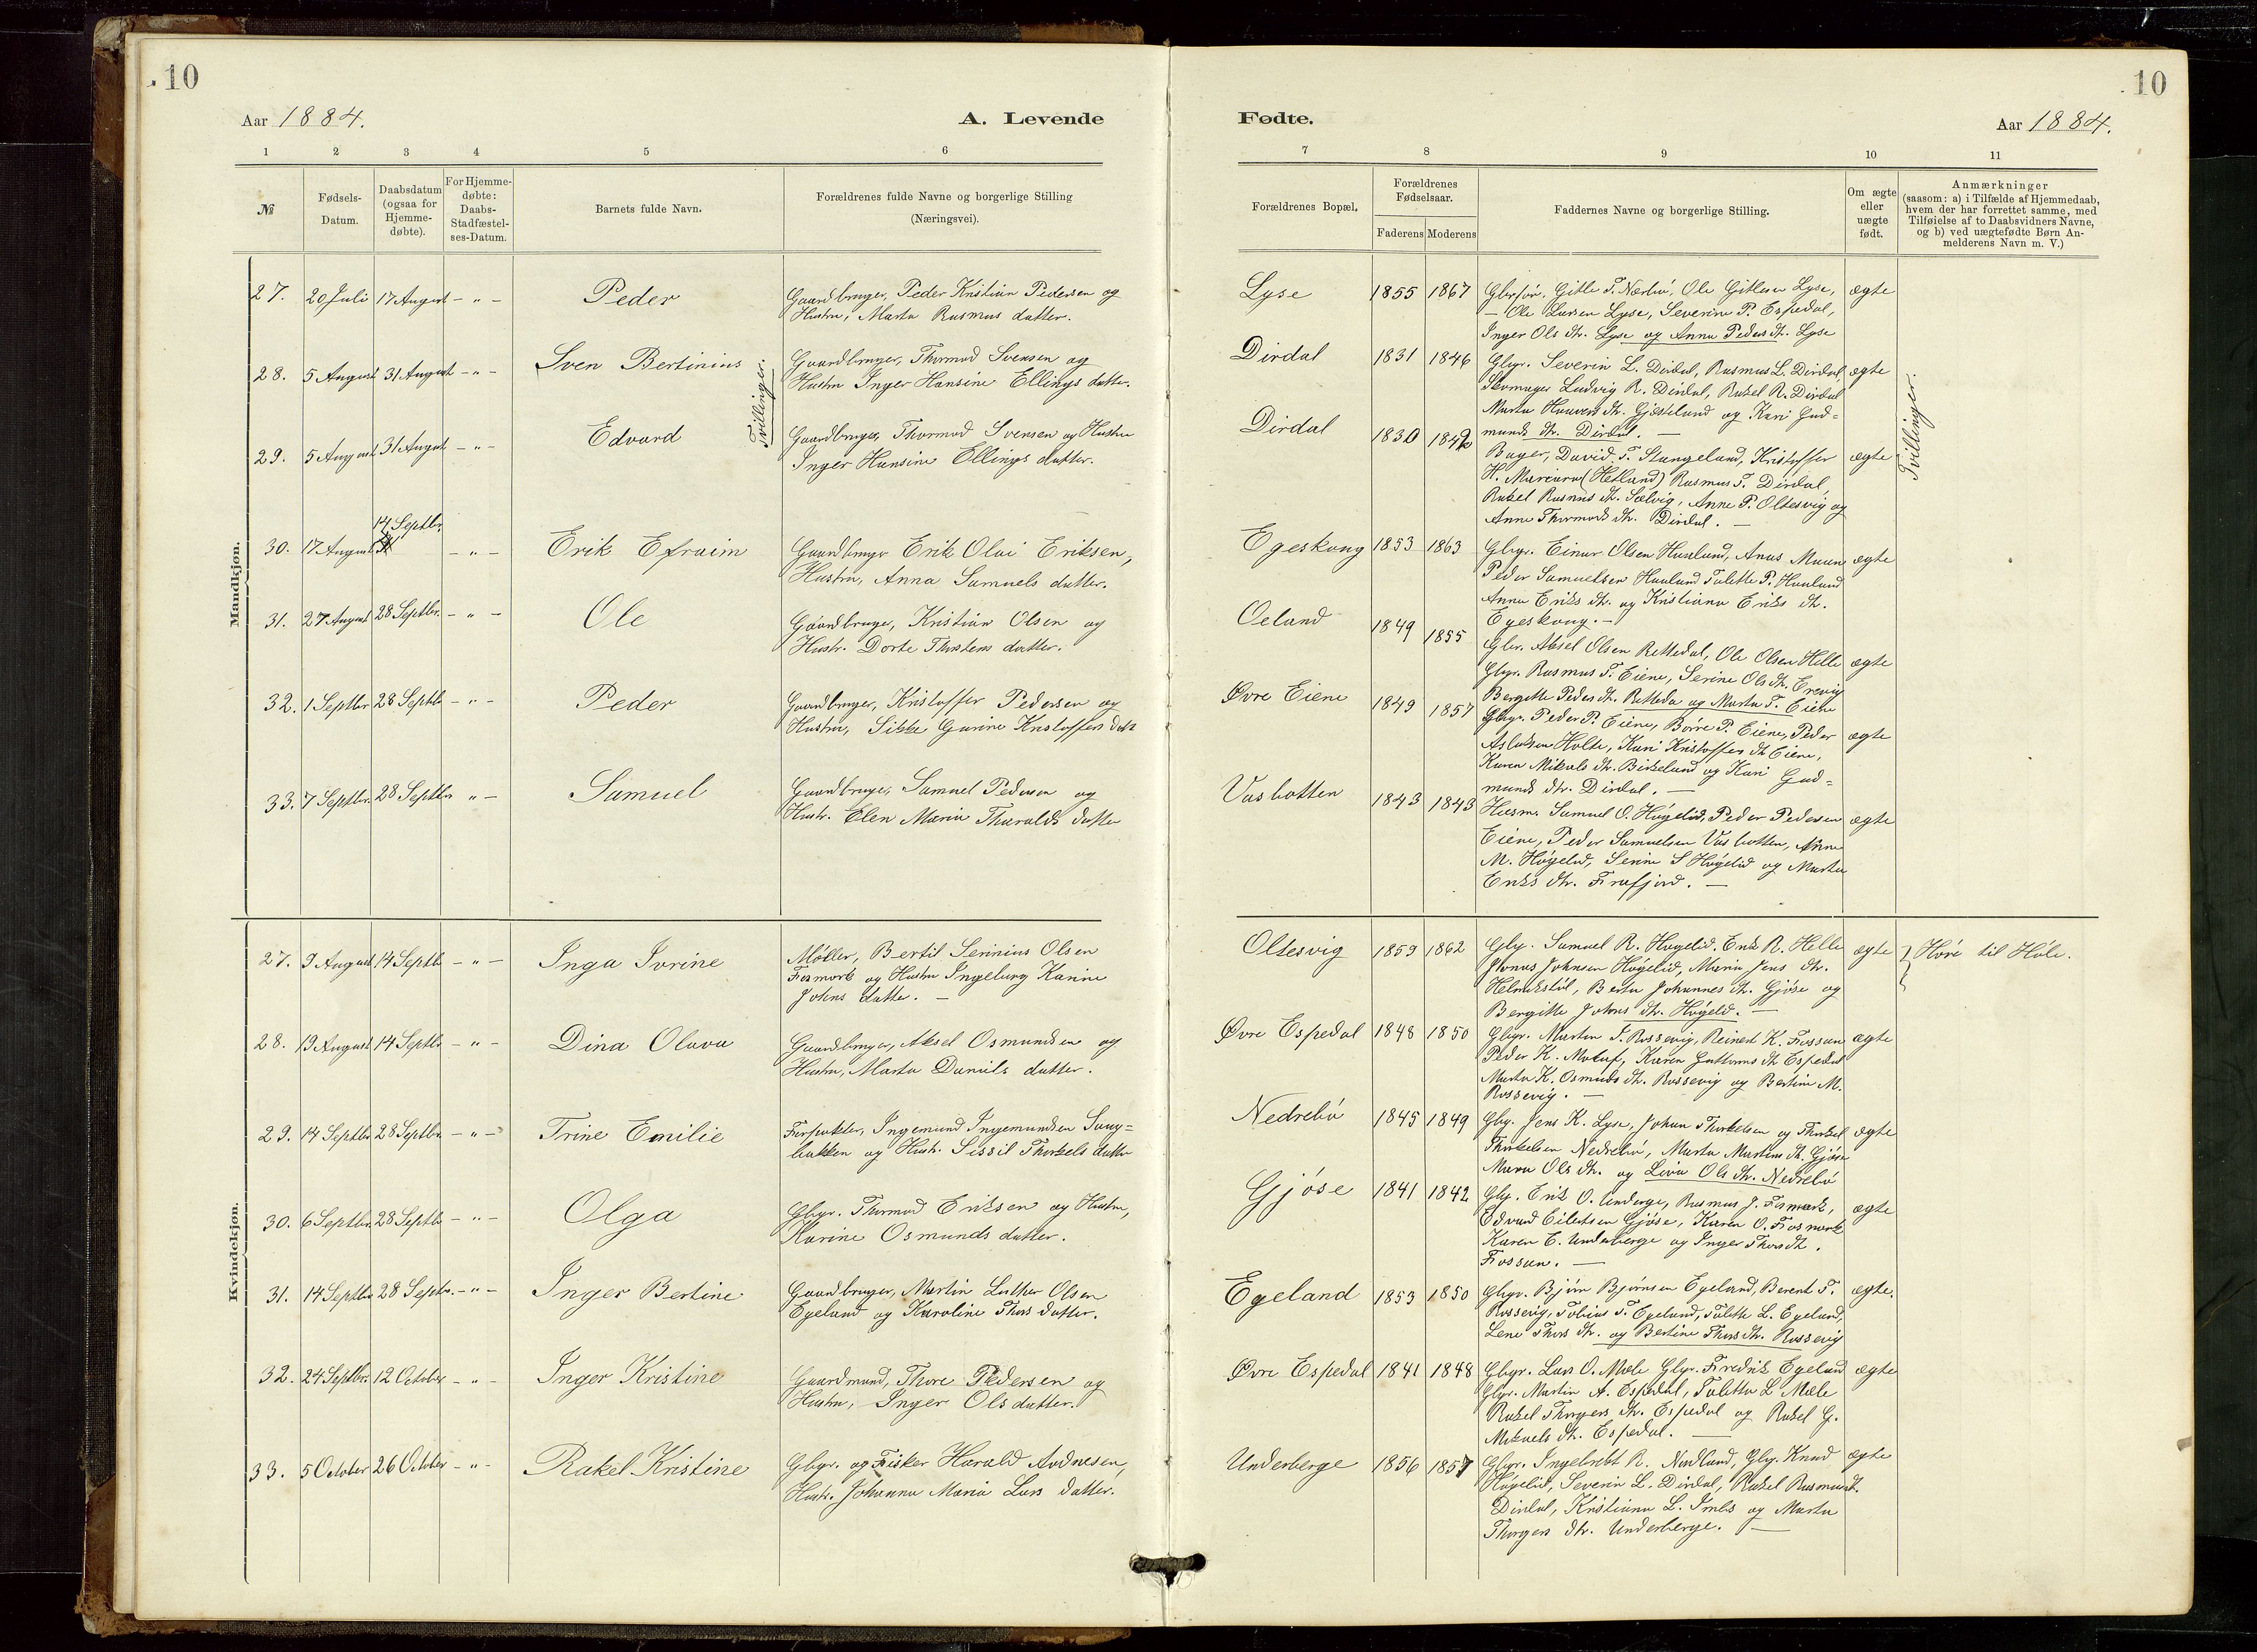 10
Aar 1884.
A. Levende
1 2 3 4 5 6
№
Fødsels-
Datum.
Daabsdatum
(ogsaa for
Hjemme-
døbte).
For Hjemme-
døbte:
Daabs-
Stadfæstel-
ses-Datum.
Barnets fulde Navn.
Forældrenes fulde Navne og borgerlige Stilling
(Næringsvei).
Mandkjøn.
27. 20 Juli 17 August - " - Peder Gaardbruger, Peder Kristian Pedersen og
Hustru, Marta Rasmus datter.
28. 5 August 31 August - " - Sven Bertinius Gaardbruger, Thormod Svensen og
Hustru Inger Hansine Ellings datter.
Tvillinger.
29. 5 August 31 August - " - Edvard Gaardbruger, Thormod Svensen og Hustru
Inger Hansine Ellings datter.
30. 17 August 14 Septbr. - " - Erik Efraim Gaardbruger Erik Olai Eriksen,
Hustru, Anna Samuels datter.
31. 27 August 28 Septbr. - " - Ole Gaardbruger, Kristian Olsen og
Hustr. Dorte Thorstens datter.
32. 1 Septbr 28 Septb - " - Peder Gaardbruger, Kristoffer Pedersen og
Hustru, Sikke Gurine Kristoffers datr
33. 7 Septbr. 28 Septbr " - Samuel Gaardbruger, Samuel Pedersen og
Hustr. Elen Maria Tharalds datter
Kvindekjøn.
27. 9 August 14 Septb - " - Inga Ivrine Møller, Bertil Serinius Olsen
Fosmork og Hustru Ingeborg Karine
Johns datte. -
28. 13 August 14 Septbr - " - Dina Olava Gaardbruger, Aksel Osmundsen og
Hustru, Marta Daniels datter.
29. 14 Septbr 28 Septbr. - " - Trine Emilie Forpakter, Ingemund Ingemundsen
bakken og Hustr. Sissil Thorkels datter
30. 6 Septbr. 28 Septb - " - Olga Gbgr. Thormod Eriksen og Hustru,
Karine Osmunds datter.
31. 14 Septbr 28 Septr. - " - Inger Bertine Gaardbruger, Martin Luther Olsen
Egeland og Karoline Thors datter.
32. 24 Septbr. 12 October - " - Inger Kristine Gaardmand, Thore Pedersen og
Hustru, Inger Ols datter.
33. 5 October 26 October - " - Rakel Kristine Gbgr. og Fisker Harald Avdnesen,
Hustr. Johanna Maria Lars datter.
10
Fødte.
Aar 1884.
7 8 9 10 11
Forældrenes Bopæl.
Forældrenes
Fødselsaar.
Faderens Moderens
Faddernes Navne og borgerlige Stilling.
Om ægte
eller
uægte
født.
Anmærkninger
(saasom: a) i Tilfælde af Hjemmedaab,
hvem der har forrettet samme, med
Tilføielse af to Daabsvidners Navne,
og b) ved uægtefødte Børn An-
melderens Navn m. V.)
Lyse 1855 1867 Gitle T. Nærbø, Ole Gitlesen Lyse, ægte
- Ole Larsen Lyse, Severine P. Espedal,
Inger Ols dt. Lyse og Anna Peders dt. Lyse
Dirdal 1831 1846 Gbgr. Severin L. Dirdal, Rasmus L. Dirdal, ægte
Skomager Ludvig R. Dirdal, Rakel R. Dirdal
Marta dt. Gjesteland og Kari Gud=
munds dtr. Dirdal. -
Tvillinger.
Dirdal 1830 1842 David T. Stangeland, Kristoffer ægte
H. (Hetland) Rasmus T. Dirdal,
Rakel Rasmus dt. Selvig, Anne P. Oltesvig og
Anne Thormods dtr. Dirdal. -
Egeskong 1853 1863 Gbgr. Einar Olsen Hauland, Anas ægte
Peder Samuelsen Hauland Talette P. Hauland
Anna Eriks dt. og Kristiana Eriks dt.
Egeskong. -
Oeland 1849 1855 Gbr. Aksel Olsen Rettedal, Ole Olsen Helle ægte
Gbgr. Rasmus T. Eiene, Serine Ols dt. Erevig
Bergitte Peders dt. Retteda og Marta T. Eiene
Øvre Eiene 1849 1857 Gbgr. Peder P. Eiene, Børre P. Eiene, Peder ægte
Aslaksen Holte, Kari Kristoffers dt Eiene,
Karen Mikaels dt. Birkeland og Kari Gud=
munds dtr. Dirdal. -
Vasbotten 1843 1843 Husm. Samuel O. Høgelid, Peder Pedersen ægte
Eiene, Peder Samuelsen Vasbotten, Anne
M. Høgelid, Serine S Høgelid og Marta
Eriks dtr. Frafjord. -
Oltesvig 1859 1862 Gbg. Samuel R. Høgelid. Erik R. Helle ægte Høre til Høle.
Jonas Johnsen Høgelid, Maria Jens dtr.
Helmikstøl, Berta Johannes dt. Gjøse og
Bergitte Johns dtr. Høgeld. -
Øvre Espedal 1848 1850 Gbgr. Martin T. Rossevig, Reinert K. Fossan ægte
Peder K. Molaf, Karen Guttorms dt Espedal
Marta K. Osmunds dt. Rossevig og Bertine M.
Rossevig. -
Nedrebø 1845 1849 Gbg. Jens K. Lyse, Johan Thorkelsen og Thorkel ægte
Thorkelsen Nedrebø, Marta Martins dt. Gjøse
Maria Ols dt. og Lovia Ols dt. Nedrebø
Gjøse 1841 1842 Gbg. Erik O. Underge, Rasmus J. Fosmark, ægte
Edvard Eilertsen Gjøse, Karen O. Fosmark
Karen E. Underberge og Inger Thors dt.
Fossan. -
Egeland 1853 1850 Gbgr. Bjørn Bjørnsen Egeland, Berent T. ægte.
Rossevig, Tobias T. Egeland, Talette L. Egeland,
Lene Thors dt. og Bertine Thors dt. Rossevig
Øvre Espedal 1841 1848 Gbgr. Lars O. Mæle Gbgr. Fredrik Egeland ægte
Gbgr. Martin A. Espedal, Taletta L Mæle
Rakel Thorgers dt. Espedal og Rakel G.
Mikaels dt. Espedal. -
Underberge 1856 1857 Gbgr. Ingebrekt R. Nedland, Gbg. Knud ægte
Høgelid, Severin L. Dirdal, Rakel Rasmusdt.
Dirdal, Kristiana L. Imbs og Marta
Thorgers dtr. Underberge. -